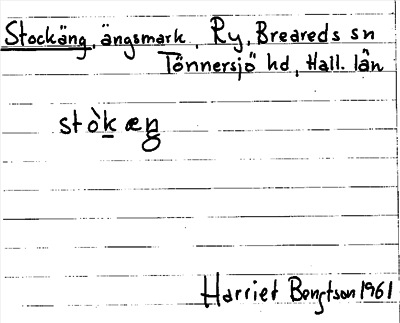 Stockäng, ängsmark, Ry, Breareds sn
Tönnersjö hd, Hall. län
stòk̲æŋ
Harriet Bengtson 1961